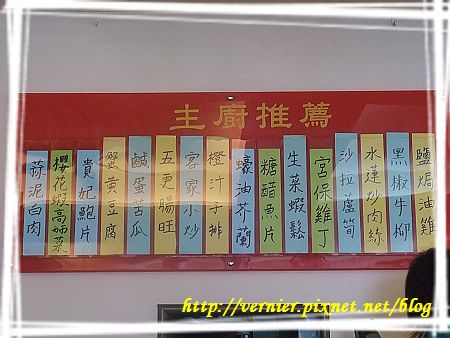 主廚推薦
鹽焗油雞
黑椒牛柳
水蓮炒肉絲
沙拉蘆筍
宮保雞丁
生菜蝦鬆
糖醋魚片
蠔油芥蘭
橙汁子排
客家小炒
五更腸旺
鹹蛋苦瓜
蟹黃豆腐
貴妃鮑片
櫻花蝦高麗菜
蒜泥白肉
http://vernier.pixnet.net/blog